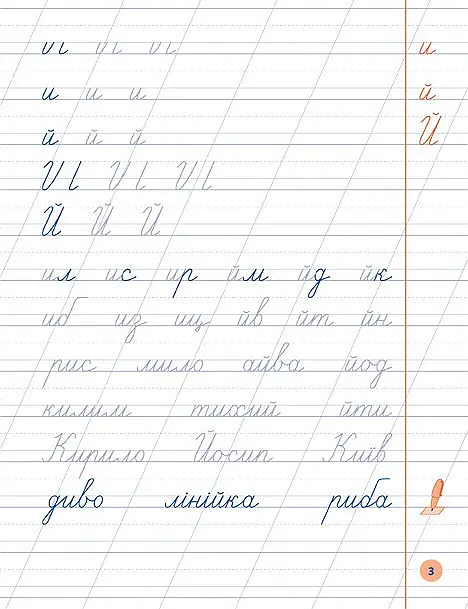 и
и и и
й
й й й
Й
Й Й Й
ил ис ир йм йд йк
иб из иц йв йт йн
рис мило айва йод
килим тихий йти
Кирило Йосип Київ
диво лінійка риба
3